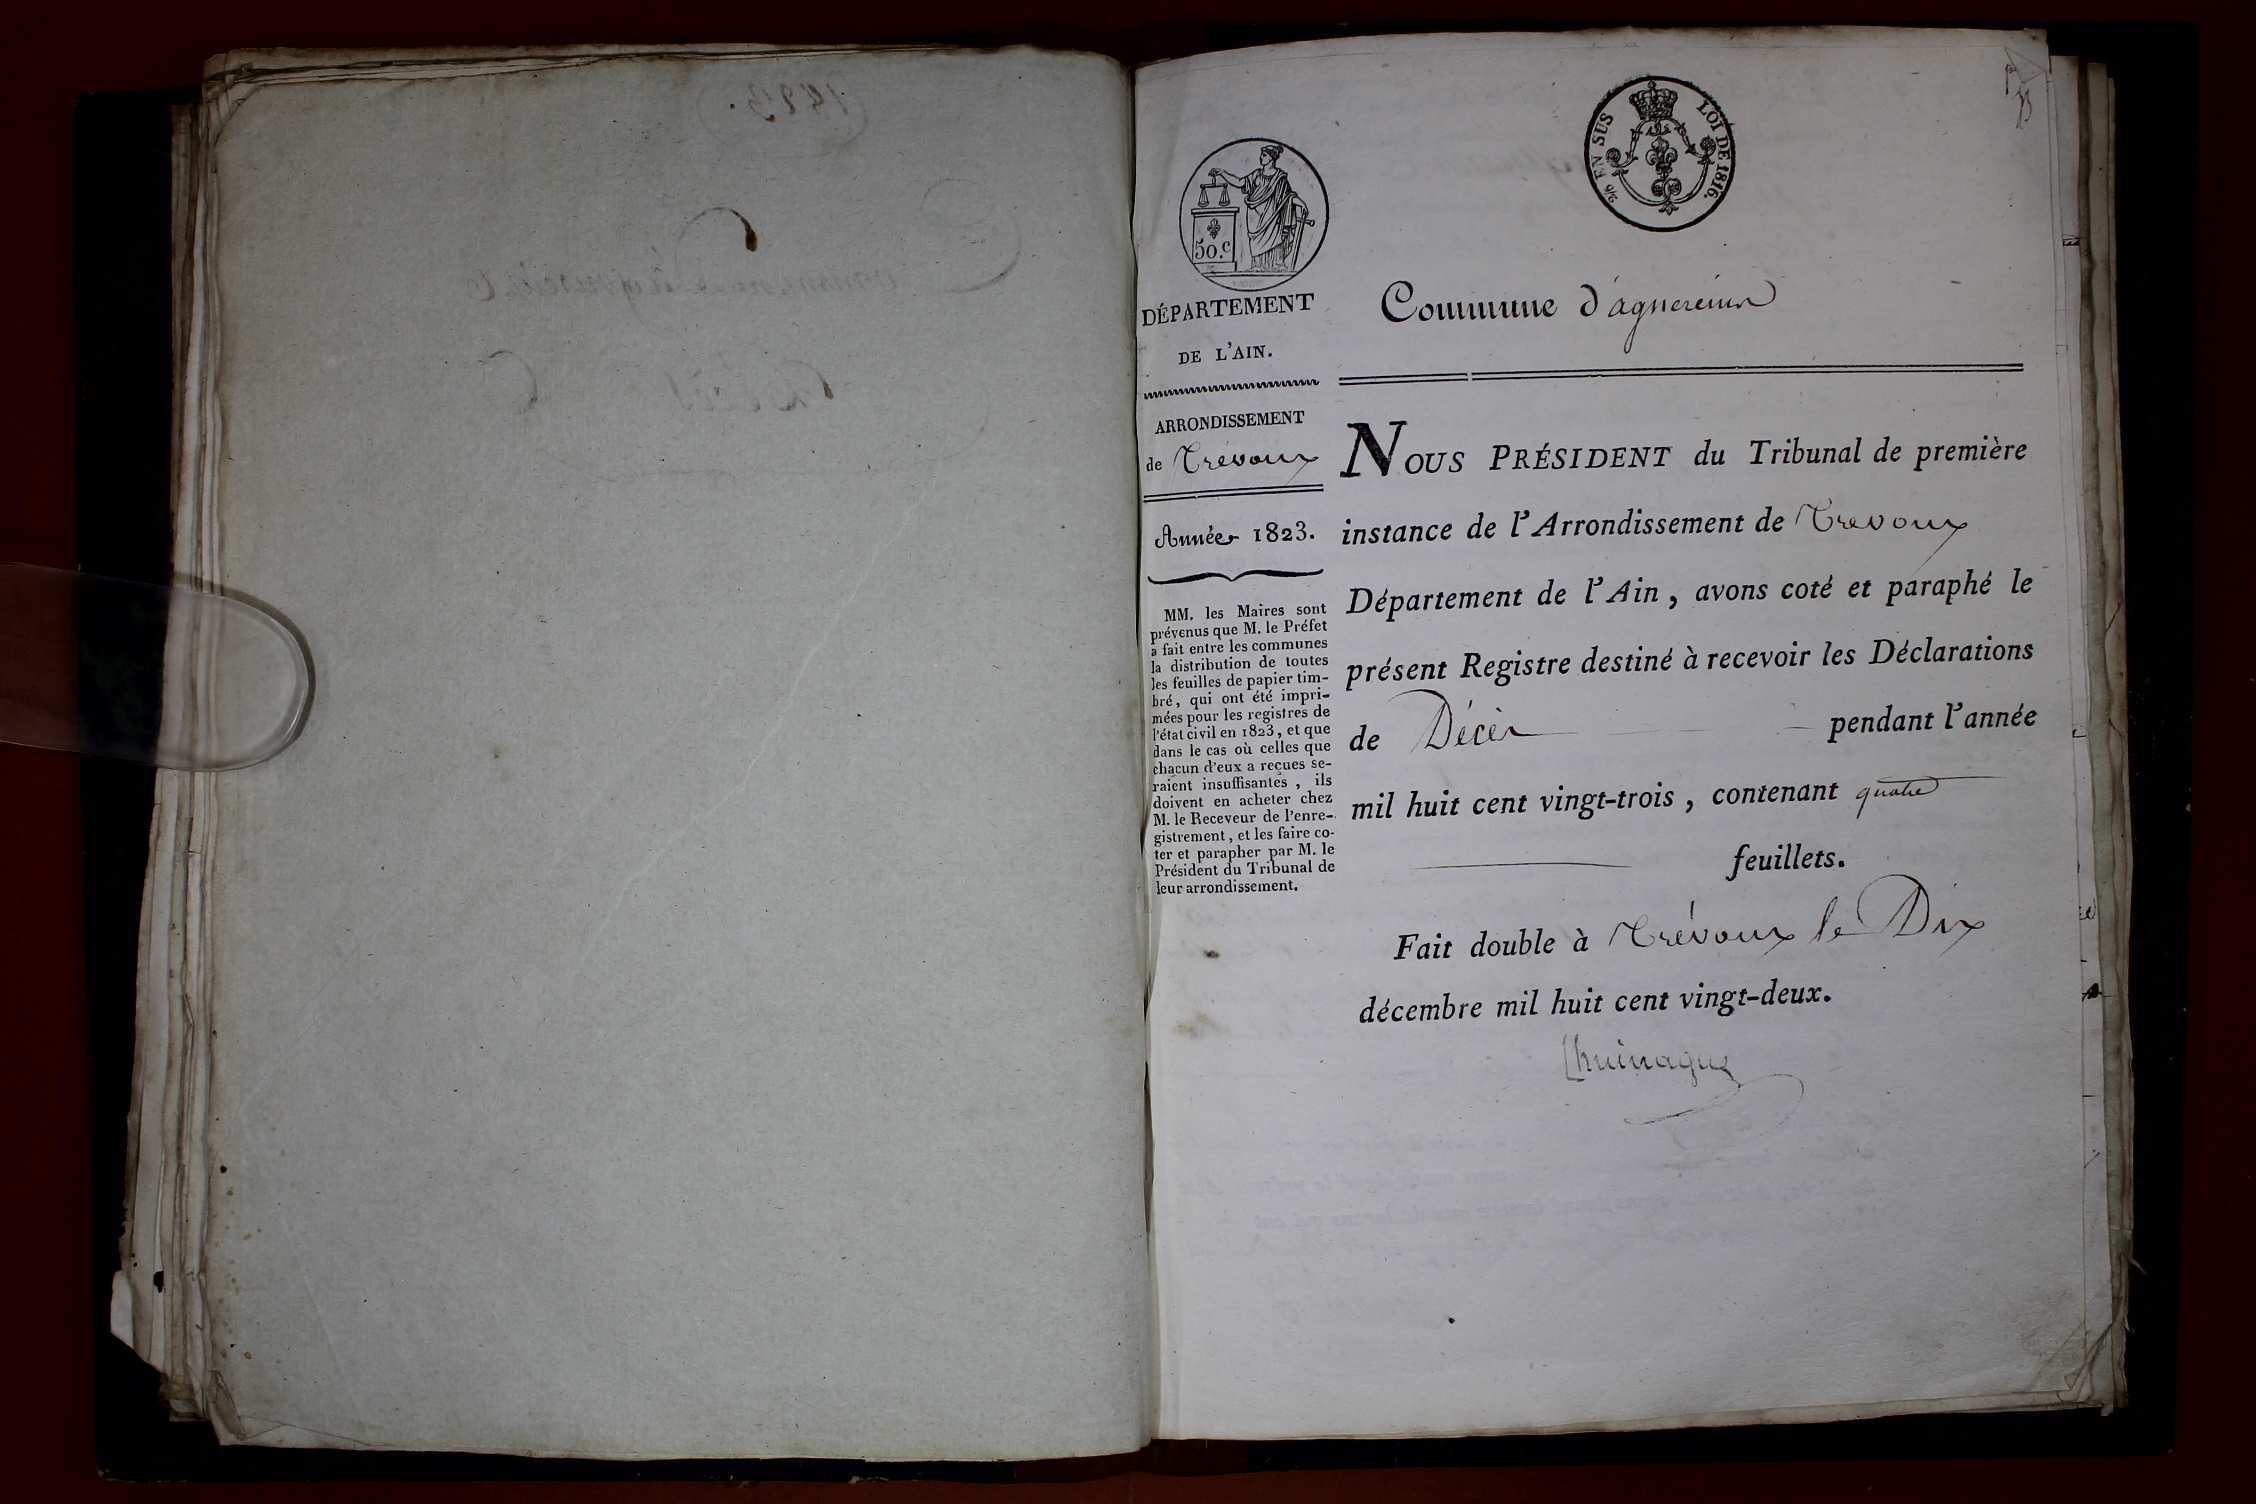 2/6 EN SUS LOI DE 1816.
50.c
DÉPARTEMENT
DE L'AIN.
ARRONDISSEMENT
de Trévoux
Année 1823.
MM. les Maires sont
prévenus que M. le Préfet
a fait entre les communes
la distribution de toutes
les feuilles de papier tim-
bré, qui ont été impri-
mées pour les registres de
l'état civil en 1823, et que
dans le cas où celles que
chacun d'eux a reçues se-
raient insuffisantes, ils
doivent en acheter chez
M. le Receveur de l'enre-
gistrement, et les faire co-
ter et parapher par M. le
Président du Tribunal de
leur arrondissement.
Commune d'agnereins
NOUS PRÉSIDENT du Tribunal de première
instance de l'Arrondissement de Trevoux
Département de l'Ain, avons coté et paraphé le
présent Registre destiné à recevoir les Déclarations
de Décès pendant l'année
mil huit cent vingt-trois, contenant quatre
feuillets.
Fait double à Trévoux le Dix
décembre mil huit cent vingt-deux.